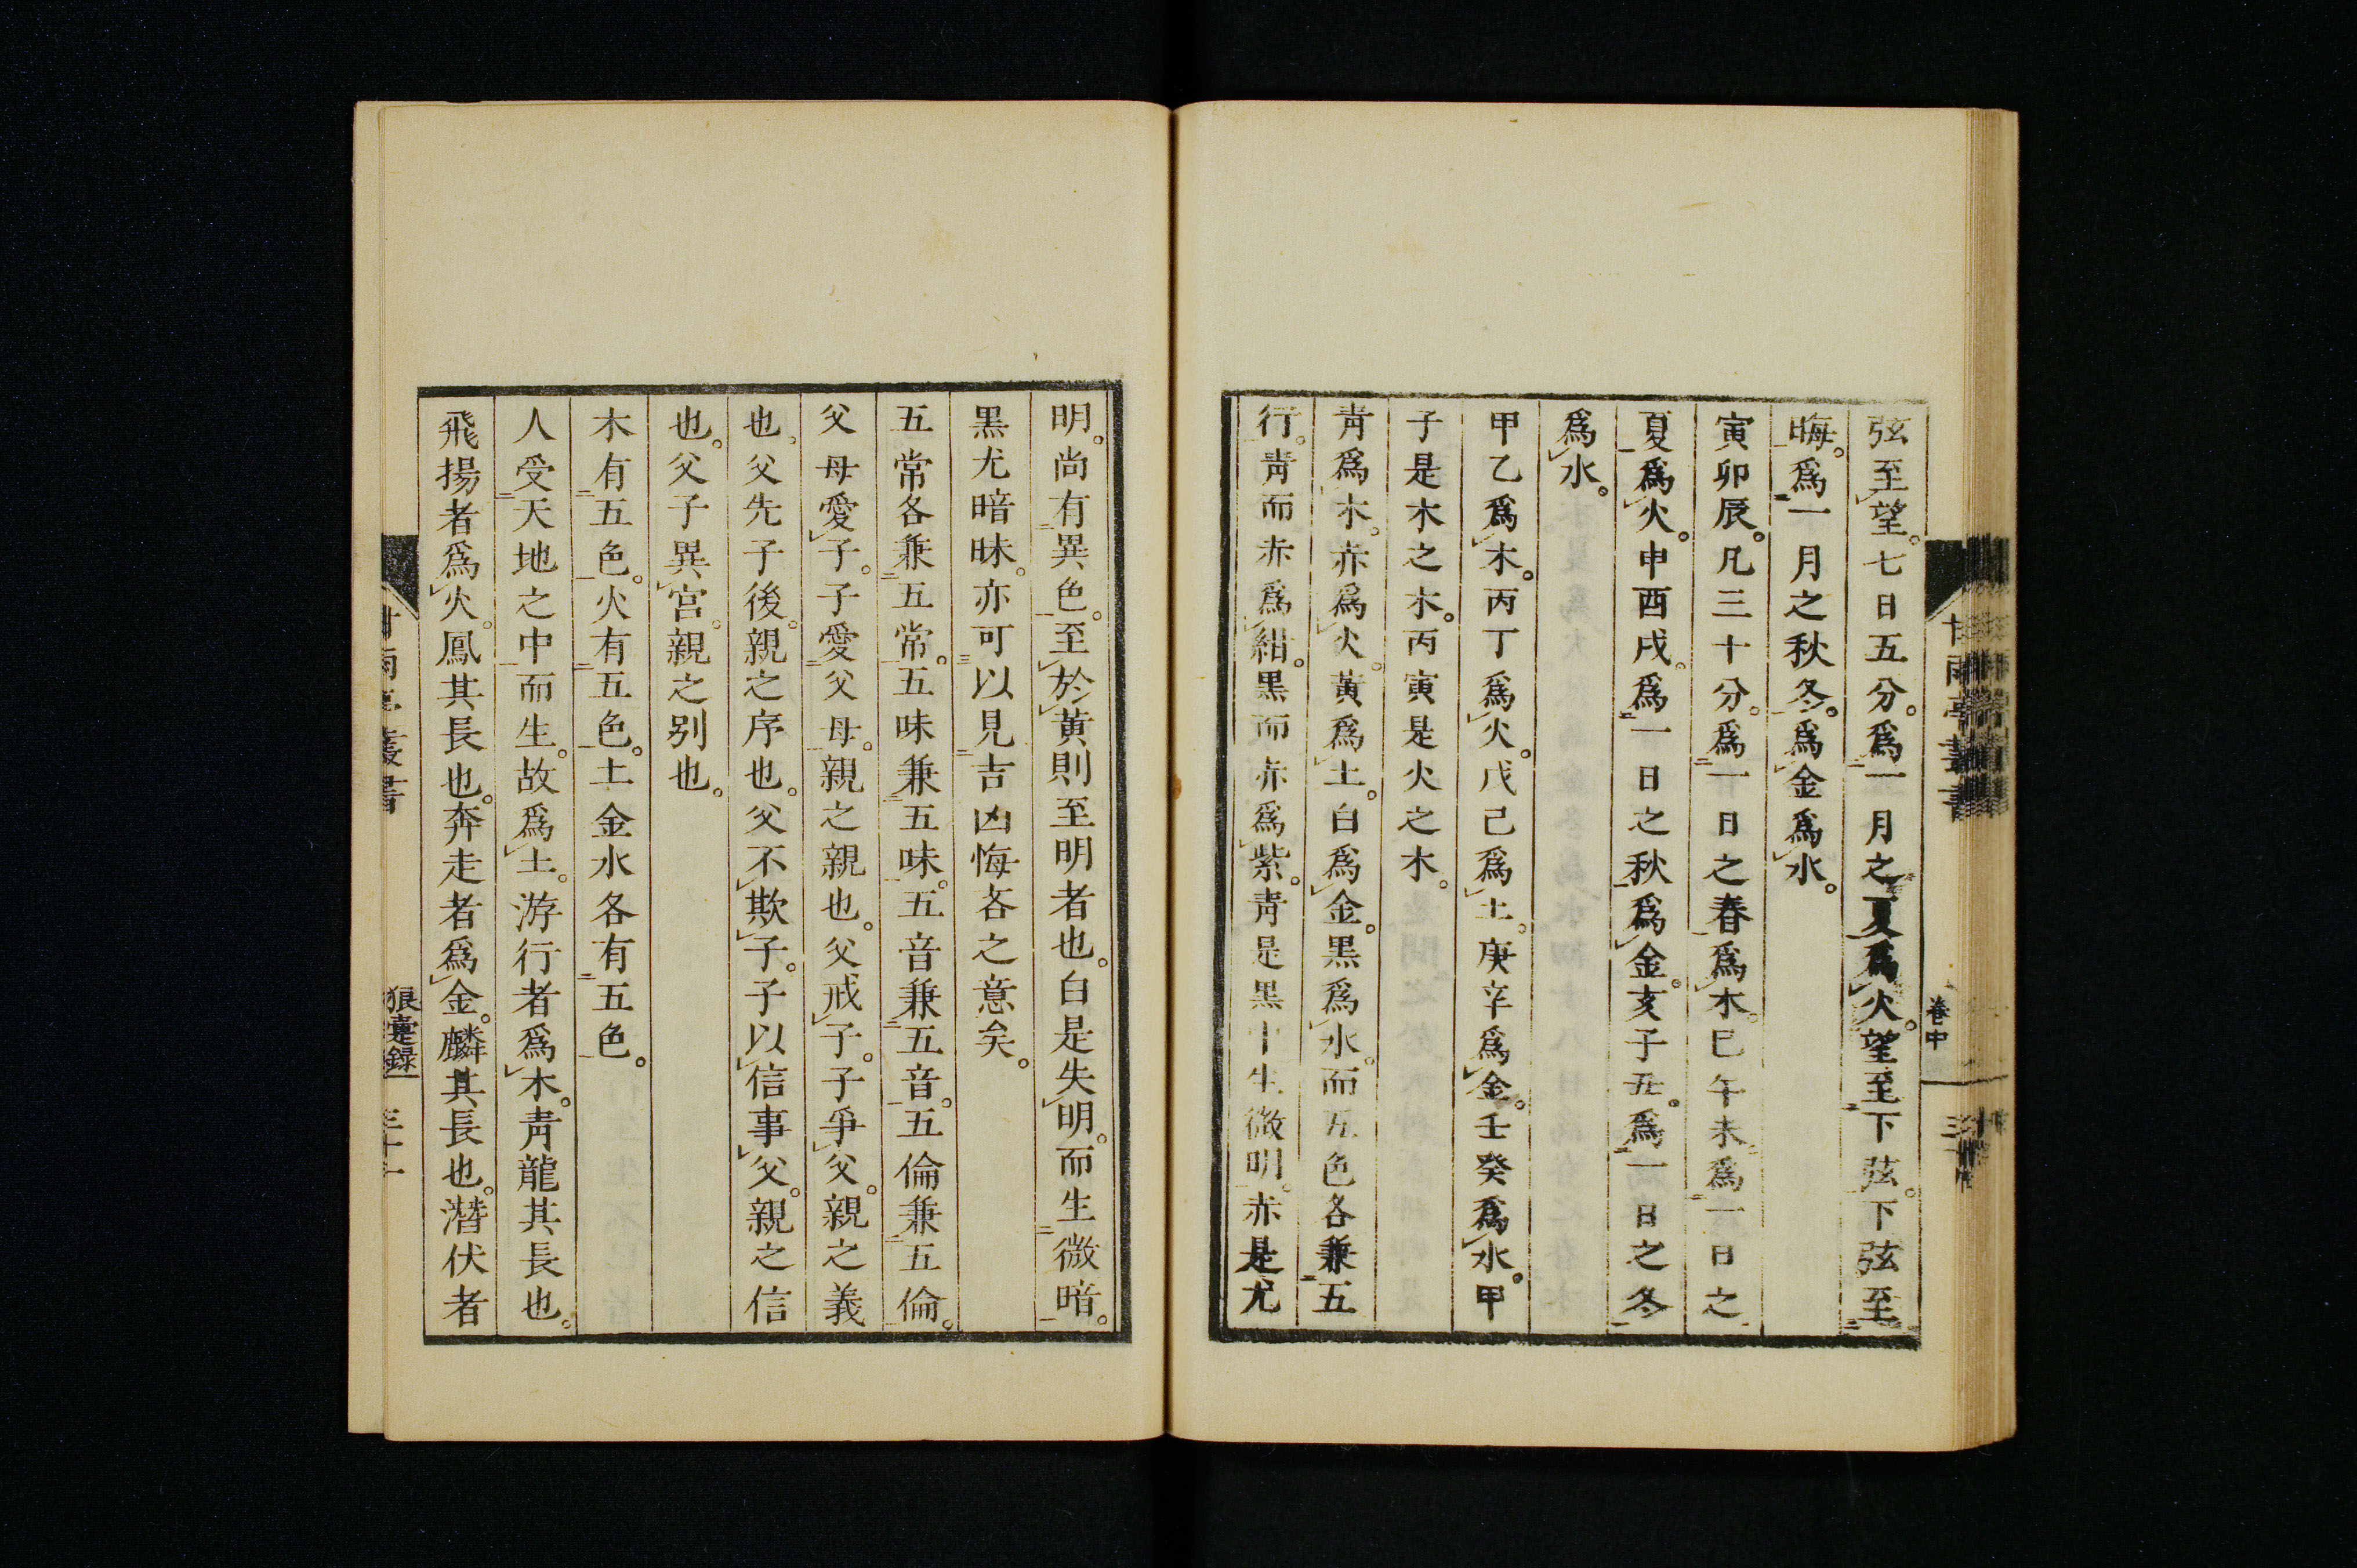 弦至望。七日五分。爲一月之夏爲火。望至下弦。下弦至
晦。爲一月之秋冬。爲金爲水。
寅卯辰。凡三十分。爲一日之春爲木。巳午未爲一日之
夏爲火。申酉戌。爲一日之秋爲金。亥子丑。爲一日之冬
爲水。
甲乙爲木。丙丁爲火。戊己爲土。庚辛爲金。壬癸爲水。甲
子是木之木。丙寅是火之木。
靑爲木。赤爲火。黃爲土。白爲金。黑爲水。而五色各兼五
行。靑而赤爲紺。黑而赤爲紫。靑是黑中生微明。赤是尤
卷中
明。尚有異色。至於黃則至明者也。白是失明。而生微暗。
黑尤暗昧。亦可以見吉凶悔吝之意矣。
五常各兼五常。五味兼五味。五音兼五音。五倫兼五倫。
父母愛子。子愛父母。親之親也。父戒子。子爭父。親之義
也。父先子後。親之序也。父不欺子。子以信事父。親之信
也。父子異宮。親之別也。
木有五色。火有五色。土金水各有五色。
人受天地之中而生。故爲土。游行者爲木。靑龍其長也。
飛揚者爲火。鳳其長也。奔走者爲金。麟其長也。潛伏者
甘雨亭叢書
狼疐錄